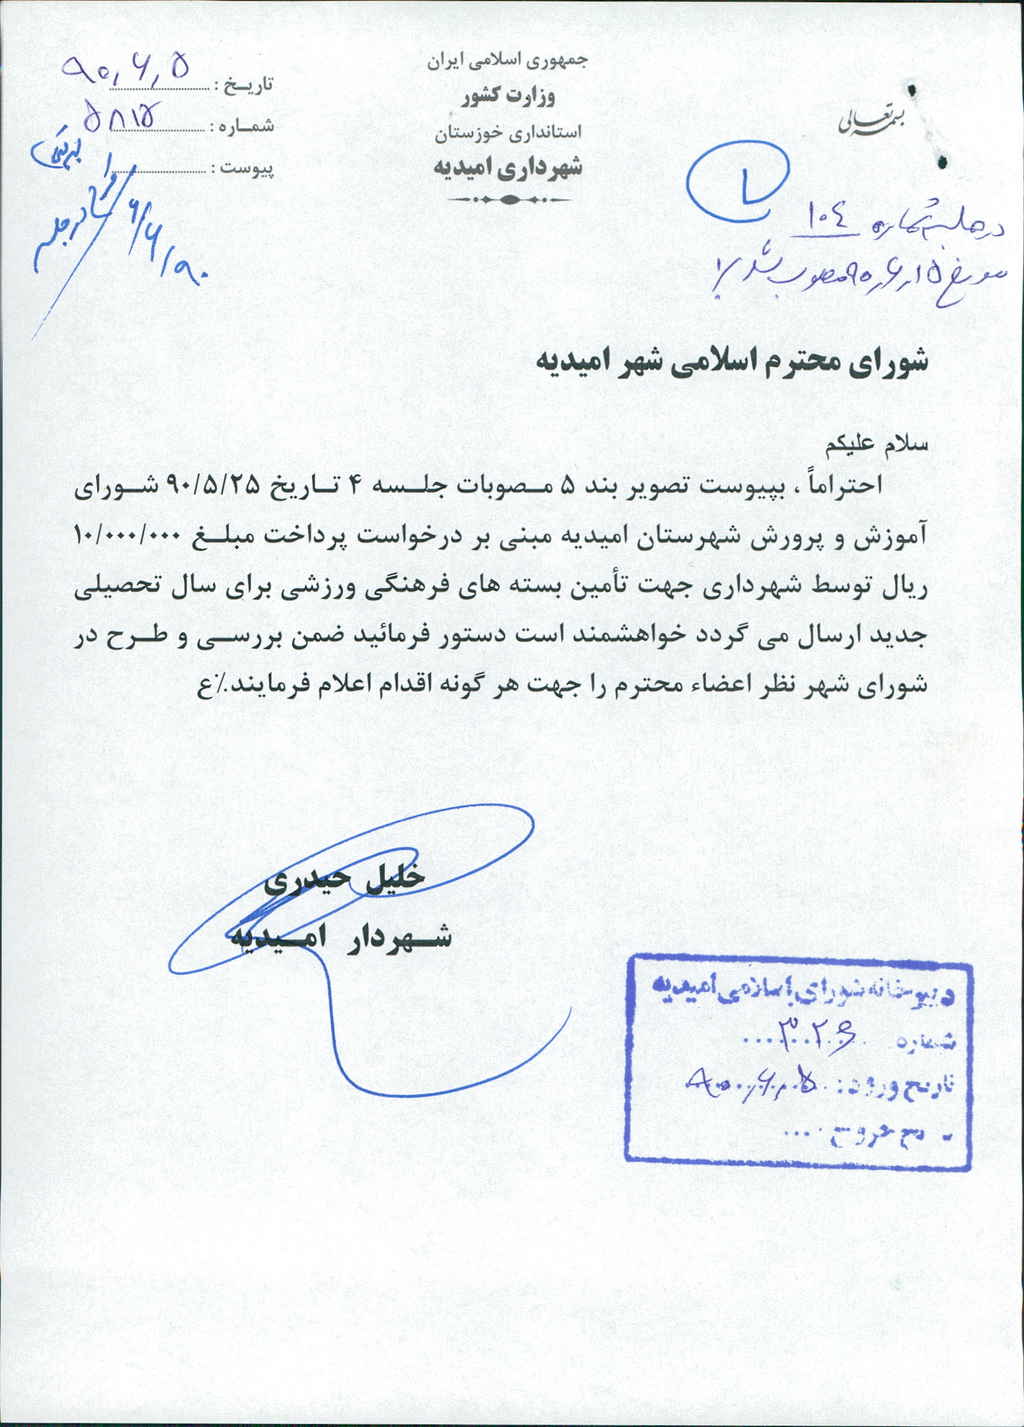 بسمه تعالی
جمهوری اسلامی ایران
وزارت کشور
استانداری خوزستان
شهرداری امیدیه
تاریـخ : ۹۰٫۶٫۵
شمـاره : ۵۸۱۵
پیوست :
۹۰/۶/۶
در جلسه شماره ۱۰۴
مورخ ۹۰٫۶٫۱۵ مصوب شد
شورای محترم اسلامی شهر امیدیه
سلام علیکم
احتراماً ، بپیوست تصویر بند ۵ مـصوبات جلـسه ۴ تـاریخ ۹۰/۵/۲۵ شـورای
آموزش و پرورش شهرستان امیدیه مبنی بر درخواست پرداخت مبلـغ ۱۰/۰۰۰/۰۰۰
ریال توسط شهرداری جهت تأمین بسته های فرهنگی ورزشی برای سال تحصیلی
جدید ارسال می گردد خواهشمند است دستور فرمائید ضمن بررسـی و طـرح در
شورای شهر نظر اعضاء محترم را جهت هر گونه اقدام اعلام فرمایند.٪ع
خلیل حیدری
شـهردار امـیدیه
دبیرخانه شورای اسلامی امیدیه
شماره ۳۰۲۶
تاریخ ورود : ۹۰٫۶٫۵